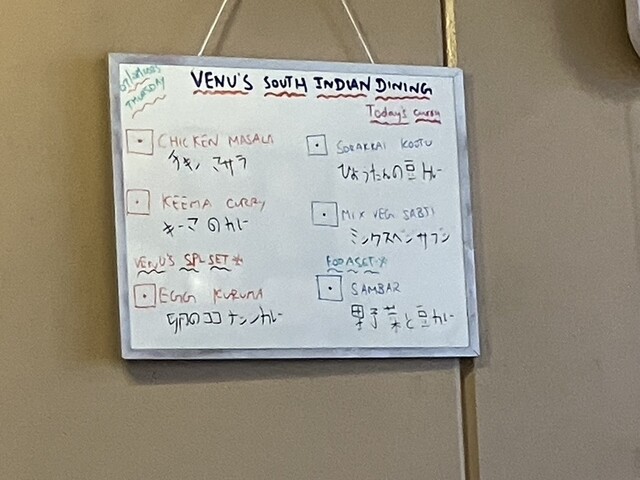 THURSDAY
VENU'S SOUTH INDIAN DINING
Today's curry
CHICKEN MASALA
チキンマサラ
KEEMA CURRY
キーマのカレー
VENU'S SPL SET *
EGG KURUMA
卵のココナッツカレー
SORAKKAI KOOTU
ひょうたんの豆カレー
MIX VEG SABJI
ミックスベジサブジ
SAMBAR